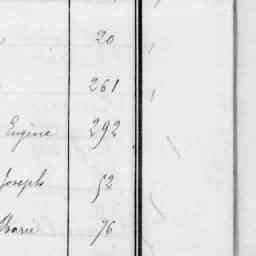 20
261
Eugène 292
Joseph 52
Marie 76